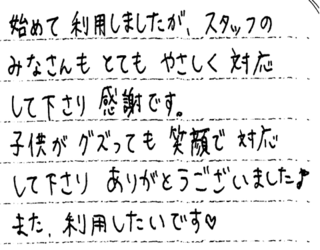 始めて利用しましたが、スタッフの
みなさんもとてもやさしく対応
して下さり感謝です。
子供がグズっても笑顔で対応
して下さりありがとうございました♪
また、利用したいです♡